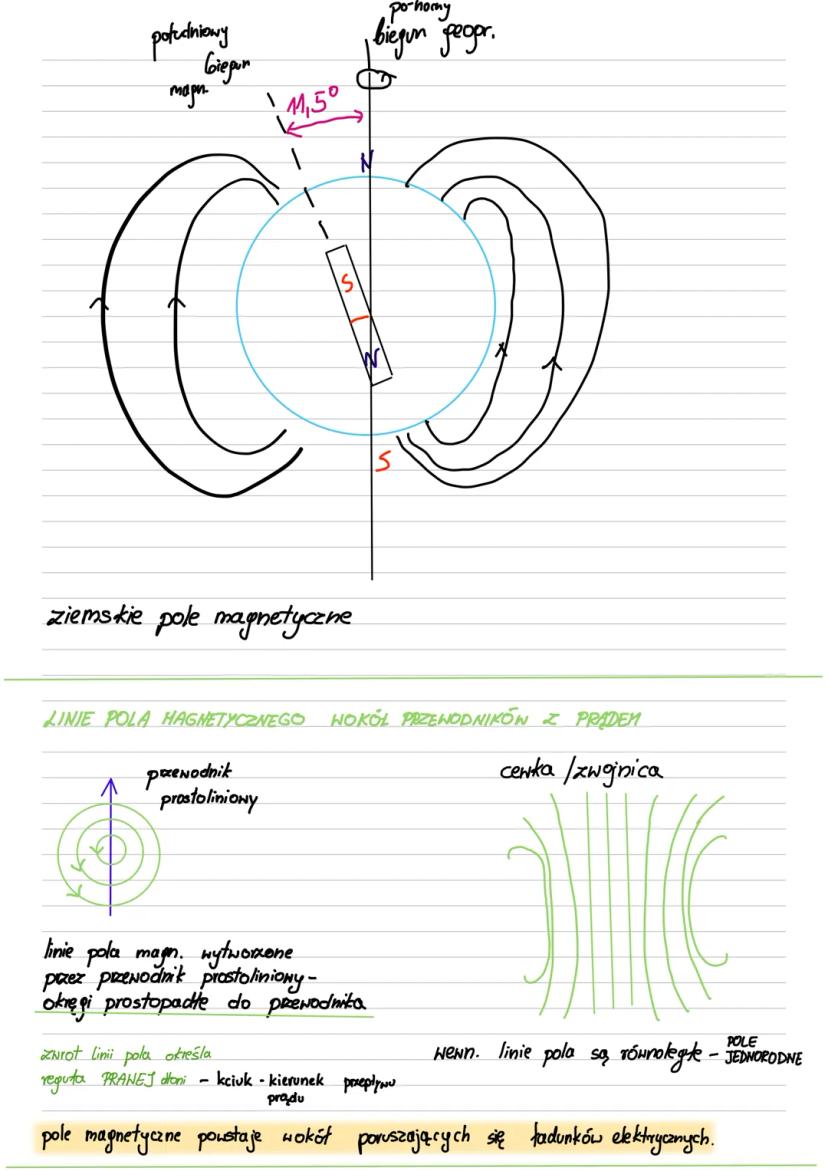 południowy
biegun
magn.
północny
biegun geogr.
11,5°
N
S
N
S
ziemskie pole magnetyczne
LINIE POLA MAGNETYCZNEGO WOKÓŁ PRZEWODNIKÓW Z PRĄDEM
przewodnik
prostoliniowy
cewka / zwojnica
linie pola magn. wytworzone
przez przewodnik prostoliniowy -
okręgi prostopadłe do przewodnika
zwrot linii pola określa
reguła PRAWEJ dłoni - kciuk - kierunek przepływu
prądu
wewn. linie pola są równoległe - POLE
JEDNORODNE
pole magnetyczne powstaje wokół poruszających się ładunków elektrycznych.